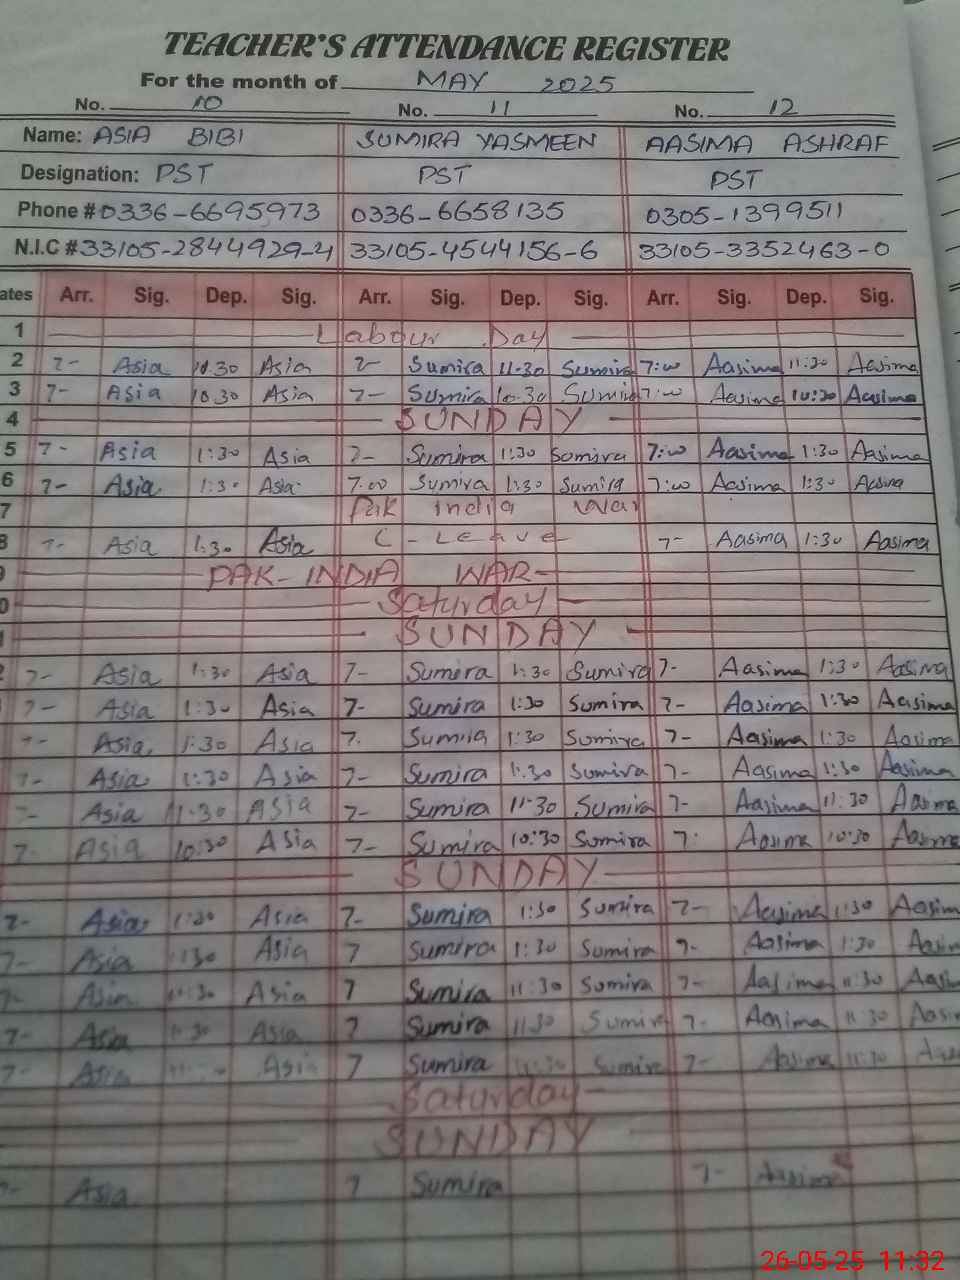 TEACHER'S ATTENDANCE REGISTER
For the month of MAY 2025
No. 10 No. 11 No. 12
Name: ASIA BIBI SUMIRA YASMEEN AASIMA ASHRAF
Designation: PST PST PST
Phone # 0336-6695973 0336-6658135 0305-1399511
N.I.C # 33105-2844929-4 33105-4544156-6 33105-3352463-0
ates Arr. Sig. Dep. Sig. Arr. Sig. Dep. Sig. Arr. Sig. Dep. Sig.
1 Labour Day
2 7- Asia 11.30 Asia 7- Sumira 11-30 Sumira 7:00 Aasima 11:30 Aasima
3 7- Asia 10.30 Asia 7- Sumira 10-30 Sumira 7:00 Aasima 10:30 Aasima
4 SUNDAY
5 7- Asia 1:30 Asia 7- Sumira 1:30 Sumira 7:00 Aasima 1:30 Aasima
6 7- Asia 1:30 Asia 7:00 Sumira 1:30 Sumira 7:00 Aasima 1:30 Aasima
7 Pak india War
8 7- Asia 1:30 Asia C-Leave 7- Aasima 1:30 Aasima
PAK-INDIA WAR
0 Saturday
SUNDAY
2 7- Asia 1:30 Asia 7- Sumira 1:30 Sumira 7- Aasima 1:30 Aasima
7- Asia 1:30 Asia 7- Sumira 1:30 Sumira 7- Aasima 1:30 Aasima
7- Asia 1:30 Asia 7. Sumira 1:30 Sumira 7- Aasima 1:30 Aasima
7- Asia 1:30 Asia 7- Sumira 1:30 Sumira 7- Aasima 1:30 Aasima
7- Asia 11-30 Asia 7- Sumira 11-30 Sumira 7- Aasima 11:30 Aasima
7- Asia 10:30 Asia 7- Sumira 10:30 Sumira 7- Aasima 10:30 Aasima
SUNDAY
7- Asia 1:30 Asia 7- Sumira 1:30 Sumira 7- Aasima 1:30 Aasim
7- Asia 1:30 Asia 7 Sumira 1:30 Sumira 7- Aasima 1:30 Aasim
7- Asia 11:30 Asia 7 Sumira 11:30 Sumira 7- Aasima 11:30 Aasi
7- Asia 11:30 Asia 7 Sumira 11:30 Sumira 7- Aasima 11:30 Aasi
7- Asia Asia 7 Sumira 11:30 Sumira 7- Aasima 11:30 Aas
Saturday
SUNDAY
7- Asia 7 Sumira 7- Aasima
26-05-25 11:32